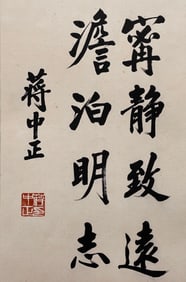 寗静致遠
澹泊明志
蔣中正